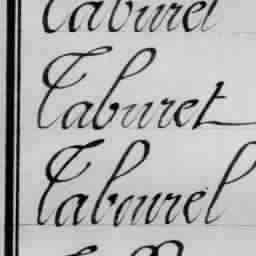 Taburet
Taburet
Tabourel